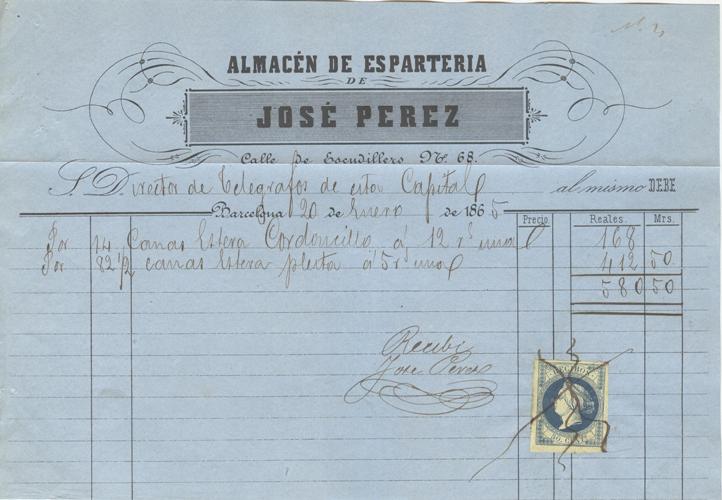 ALMACÉN DE ESPARTERIA
DE
JOSÉ PEREZ
Calle de Escudillers Nº 68.
S. D. Director de Telegrafos de esta Capital al mismo DEBE
Barcelona 20 de Enero de 1865
Precio Reales. Mrs.
Por 14 Canas Estera Cordoncillo á 12 rs una 168
Por 82 1/2 canas Estera pleita á 5 rs una 412 50
580 50
Recibi
Jose Perez
RECIBOS